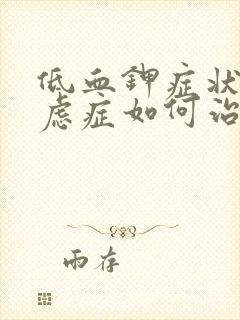 低血钾症状
虑症如何治
雨存